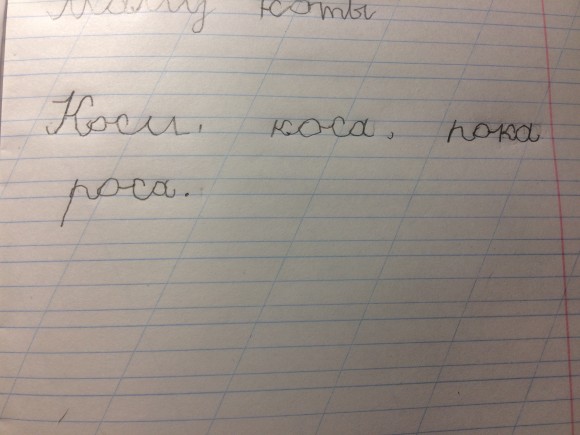 Маму коты
Коси, коса, пока
роса.